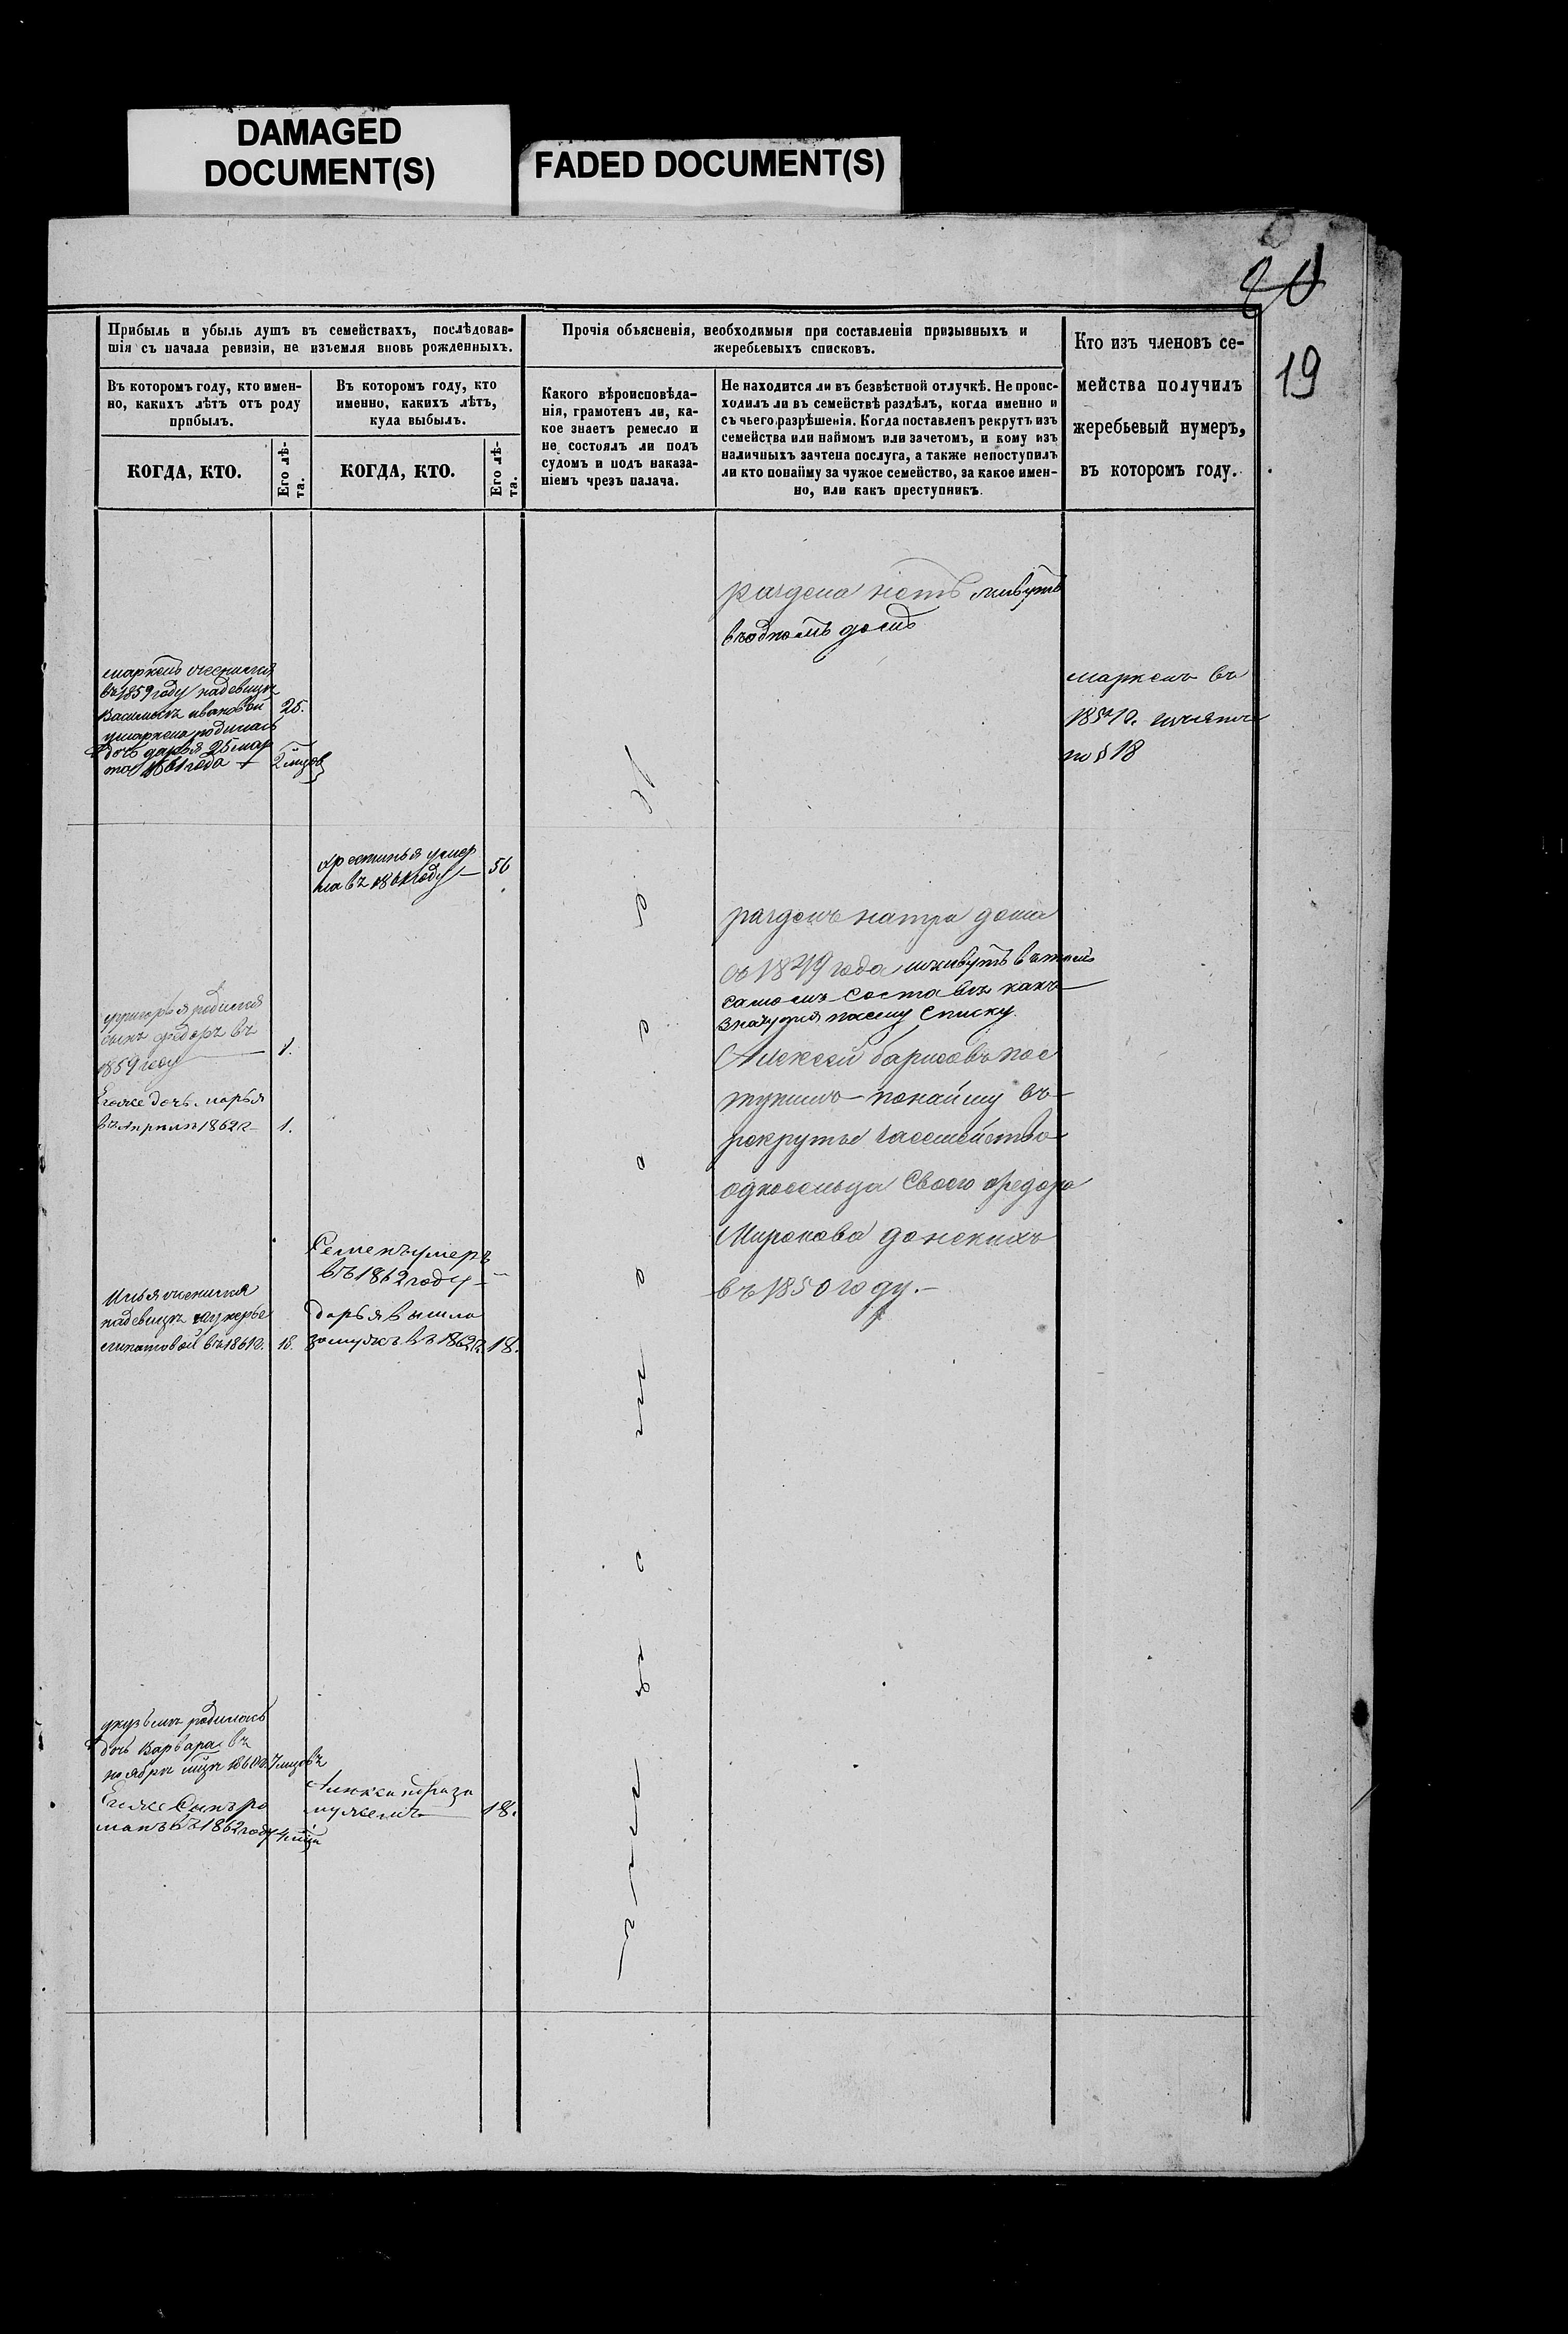 DAMAGED
DOCUMENT(S)
FADED DOCUMENT(S)
20
19
Прибыль и убыль душъ въ семействахъ, послѣдовав-
шія съ начала ревизіи, не изъемля вновь рожденныхъ.
Въ которомъ году, кто имен-
но, какихъ лѣтъ отъ роду
прибылъ.
КОГДА, КТО.
Его лѣ-
та.
Въ которомъ году, кто
именно, какихъ лѣтъ,
куда выбылъ.
КОГДА, КТО.
Его лѣ-
та.
Прочія объясненія, необходимыя при составленіи призывныхъ и
жеребьевыхъ списковъ.
Какого вѣроисповѣда-
нія, грамотенъ ли, ка-
кое знаетъ ремесло и
не состоялъ ли подъ
судомъ и подъ наказа-
ніемъ чрезъ палача.
Не находится ли въ безвѣстной отлучкѣ. Не проис-
ходилъ ли въ семействѣ раздѣлъ, когда именно и
съ чьего разрѣшенія. Когда поставленъ рекрутъ изъ
семейства или наймомъ или зачетомъ, и кому изъ
наличныхъ зачтена послуга, а также непоступилъ
ли кто понайму за чужое семейство, за какое имен-
но, или какъ преступникъ.
Кто изъ членовъ се-
мейства получилъ
жеребьевый нумеръ,
въ которомъ году.
раздела нетъ живутъ
въодномъ доме
маркелъ оженился
въ 1859 году надевице
Василисе ивановой 25.
умаркела родилась
дочь дарья 25 мар
та 1861 года 2 мцов
маркелъ въ
по § 18
хрестинья умер
ла въ году 56
разделъ натри дома
съ 1849 года иживутъ в томъ
самомъ составе какъ
значутся посему списку.
Алексей борисовъ пос
тупилъ понайму въ
рекруты засемейство
односельца Своего федора
Миронова донскихъ
въ 1850 году.
угригорья родился
сынъ федоръ въ
1859 году 1.
Егоже дочь марья
въ Апреле 1862 г 1.
Семенъ умеръ
въ 1862 году
Илья оженился
надевице
въ 1861 г. 18.
дарья вышла
замужъ въ 1862 г. 18.
укузьмы родилась
дочь Варвара въ
ноябре мцъ 7 мцовъ
Егоже Сынъ ро
манъ въ 1862 году
Александра за
мужемъ 18.